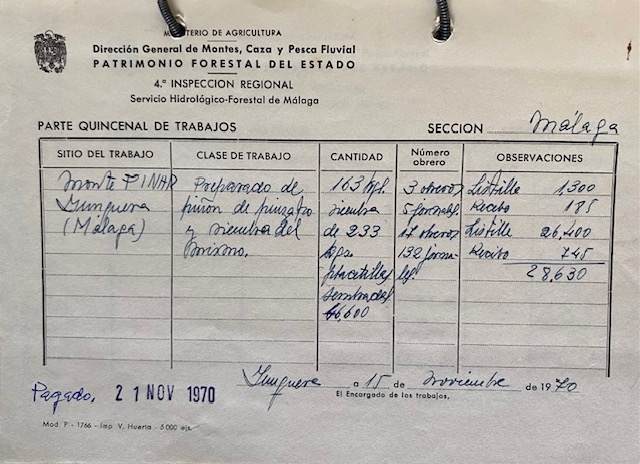 MINISTERIO DE AGRICULTURA
Dirección General de Montes, Caza y Pesca Fluvial
PATRIMONIO FORESTAL DEL ESTADO
4.ª INSPECCION REGIONAL
Servicio Hidrológico-Forestal de Málaga
PARTE QUINCENAL DE TRABAJOS SECCION Málaga
SITIO DEL TRABAJO CLASE DE TRABAJO CANTIDAD Número obrero OBSERVACIONES
Monte PINAR Preparado de 163 kgs. 3 obreros Listilla 1300
Yunquera piñón de pinzapo siembra 5 Recibo 185
(Málaga) y siembra del de 233 17 obreros Listilla 26,400
mismo. kgs. 132 Recibo 745
28,630
sembradas
66,600
Yunquera a 15 de Noviembre de 1970
Pagado, 21 NOV 1970
El Encargado de los trabajos,
Mod. P - 1766 - Imp V. Huerta - 5000 ejs.